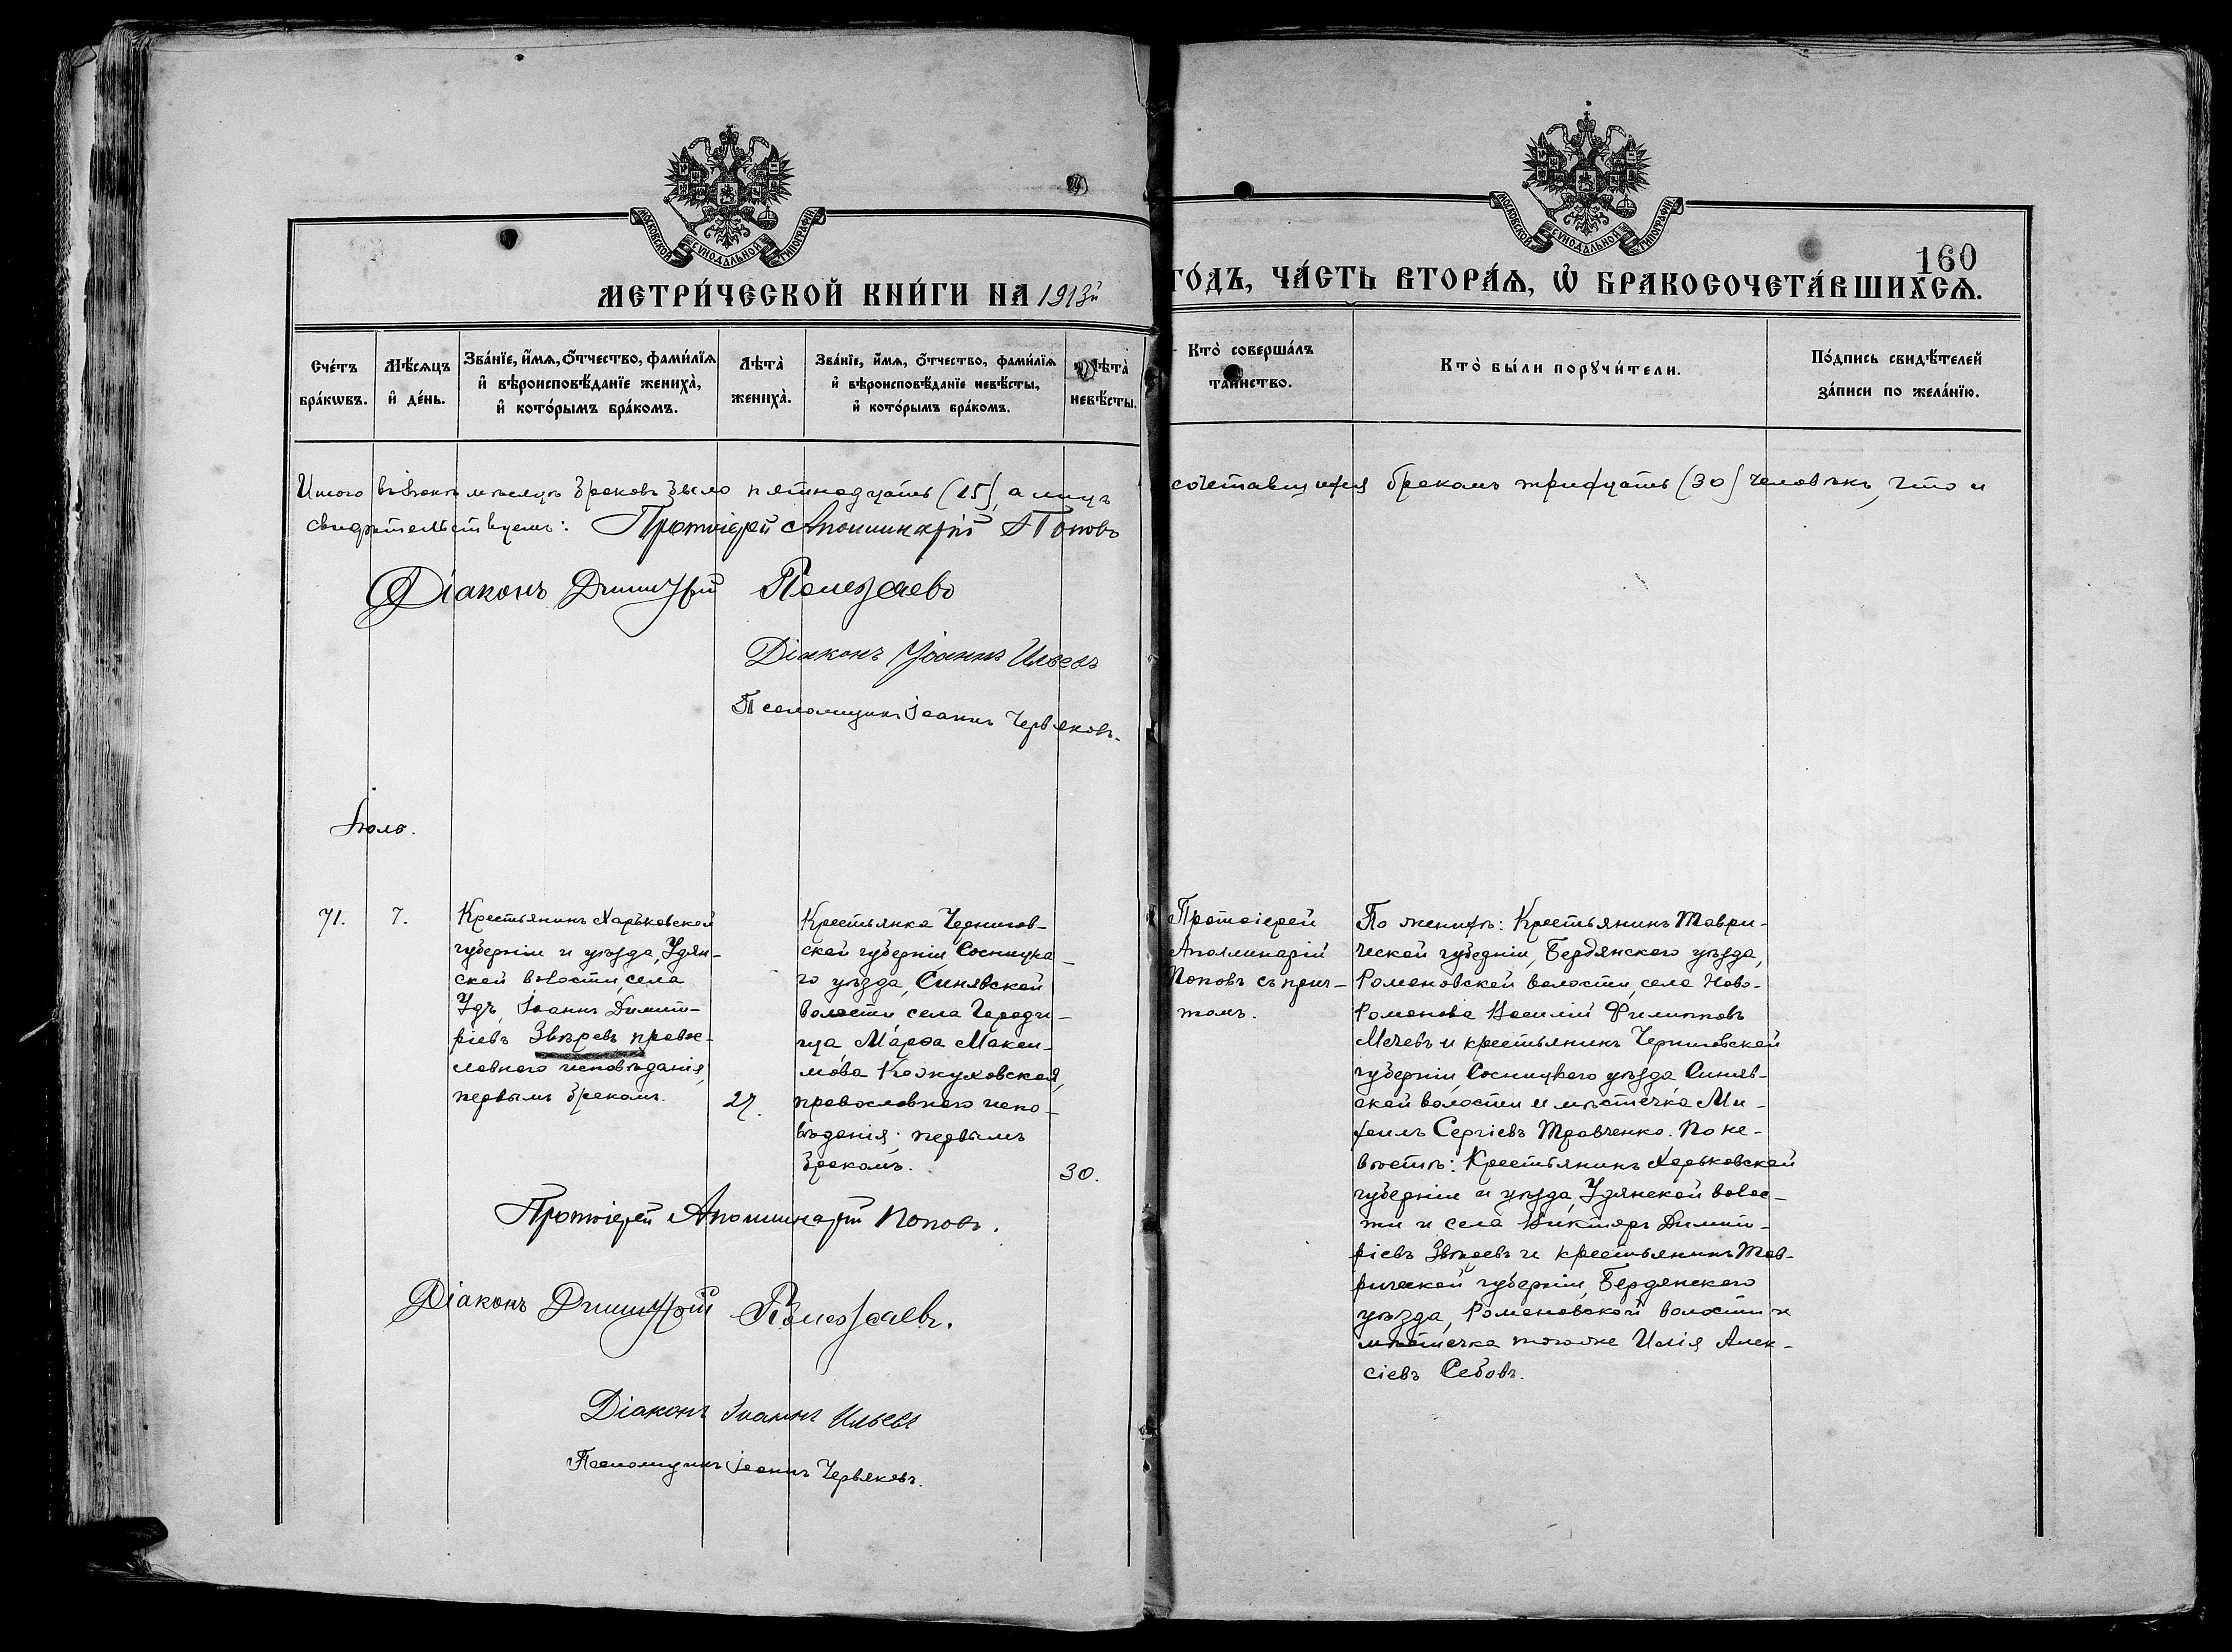 МОСКОВСКОЙ СѴНОДАЛЬНОЙ ТИПОГРАФІИ
МОСКОВСКОЙ СѴНОДАЛЬНОЙ ТИПОГРАФІИ
160
МЕТРИ́ЧЕСКОЙ КНИ́ГИ НА 1913й ГО́ДЪ, ЧА́СТЬ ВТОРА́Ѧ, Ѡ҆ БРАКОСОЧЕТА́ВШИХСѦ.
Сче́тъ бра́кѡвъ.
Мѣ́сѧцъ и҆ де́нь.
Зва́нїе, и҆́мѧ, ѻ҆́тчество, фами́лїѧ
и҆ вѣроисповѣ́данїе жениха̀,
и҆ кото́рымъ бра́комъ.
Лѣта̀ жениха̀.
Зва́нїе, и҆́мѧ, ѻ҆́тчество, фами́лїѧ
и҆ вѣроисповѣ́данїе невѣ́сты,
и҆ кото́рымъ бра́комъ.
Лѣта̀ невѣ́сты.
Кто̀ соверша́лъ
та́инство.
Кто̀ бы́ли порꙋчи́тели.
По́дпись свидѣ́телей
за́писи по жела́нїю.
Итого въ іюнѣ мѣсяцѣ браковъ было пятнадцать (15), а лицъ сочетавшихся бракомъ тридцать (30) человѣкъ, что и
свидѣтельствуемъ: Протоіерей Аполлинарій Поповъ
Діаконъ Димитрій Полежаевъ
Діаконъ Іоаннъ Ильевъ
Псаломщикъ Іоаннъ Червяковъ.
Іюль.
71. 7.
Крестьянинъ Харьковской
губерніи и уѣзда, Удян-
ской волости, села
Удъ, Іоаннъ Димит-
ріевъ Звѣревъ правос-
лавного исповѣданія,
первымъ бракомъ.
27.
Крестьянка Чернигов-
ской губерніи Сосницка-
го уѣзда, Синявской
волости села Городи-
ща Марѳа Макси-
мова Кожуховская,
православного испо-
вѣданія; первымъ
бракомъ.
30.
Протоіерей
Аполлинарій
Поповъ съ прич-
томъ.
По женихѣ: Крестьянинъ Таври-
ческой губерніи, Бердянского уѣзда,
Романовской волости, села Ново-
Романова Василій Филипповъ
Мечевъ и крестьянинъ Черниговской
губерніи, Сосницкого уѣзда Синяв-
ской волости и мѣстечка Ми-
хаилъ Сергіевъ Травченко. По не-
вѣстѣ: Крестьянинъ Харьковской
губерніи и уѣзда, Удянской волос-
ти и села Викторъ Димит-
ріевъ Звѣревъ и крестьянинъ Тав-
рической губерніи, Бердянского
уѣзда, Романовской волости и
мѣстечка тогоже Илія Алек-
сіевъ Себовъ.
Протоіерей Аполлинарій Поповъ.
Діаконъ Димитрій Полежаевъ.
Діаконъ Іоаннъ Ильевъ
Псаломщикъ Іоаннъ Червяковъ.